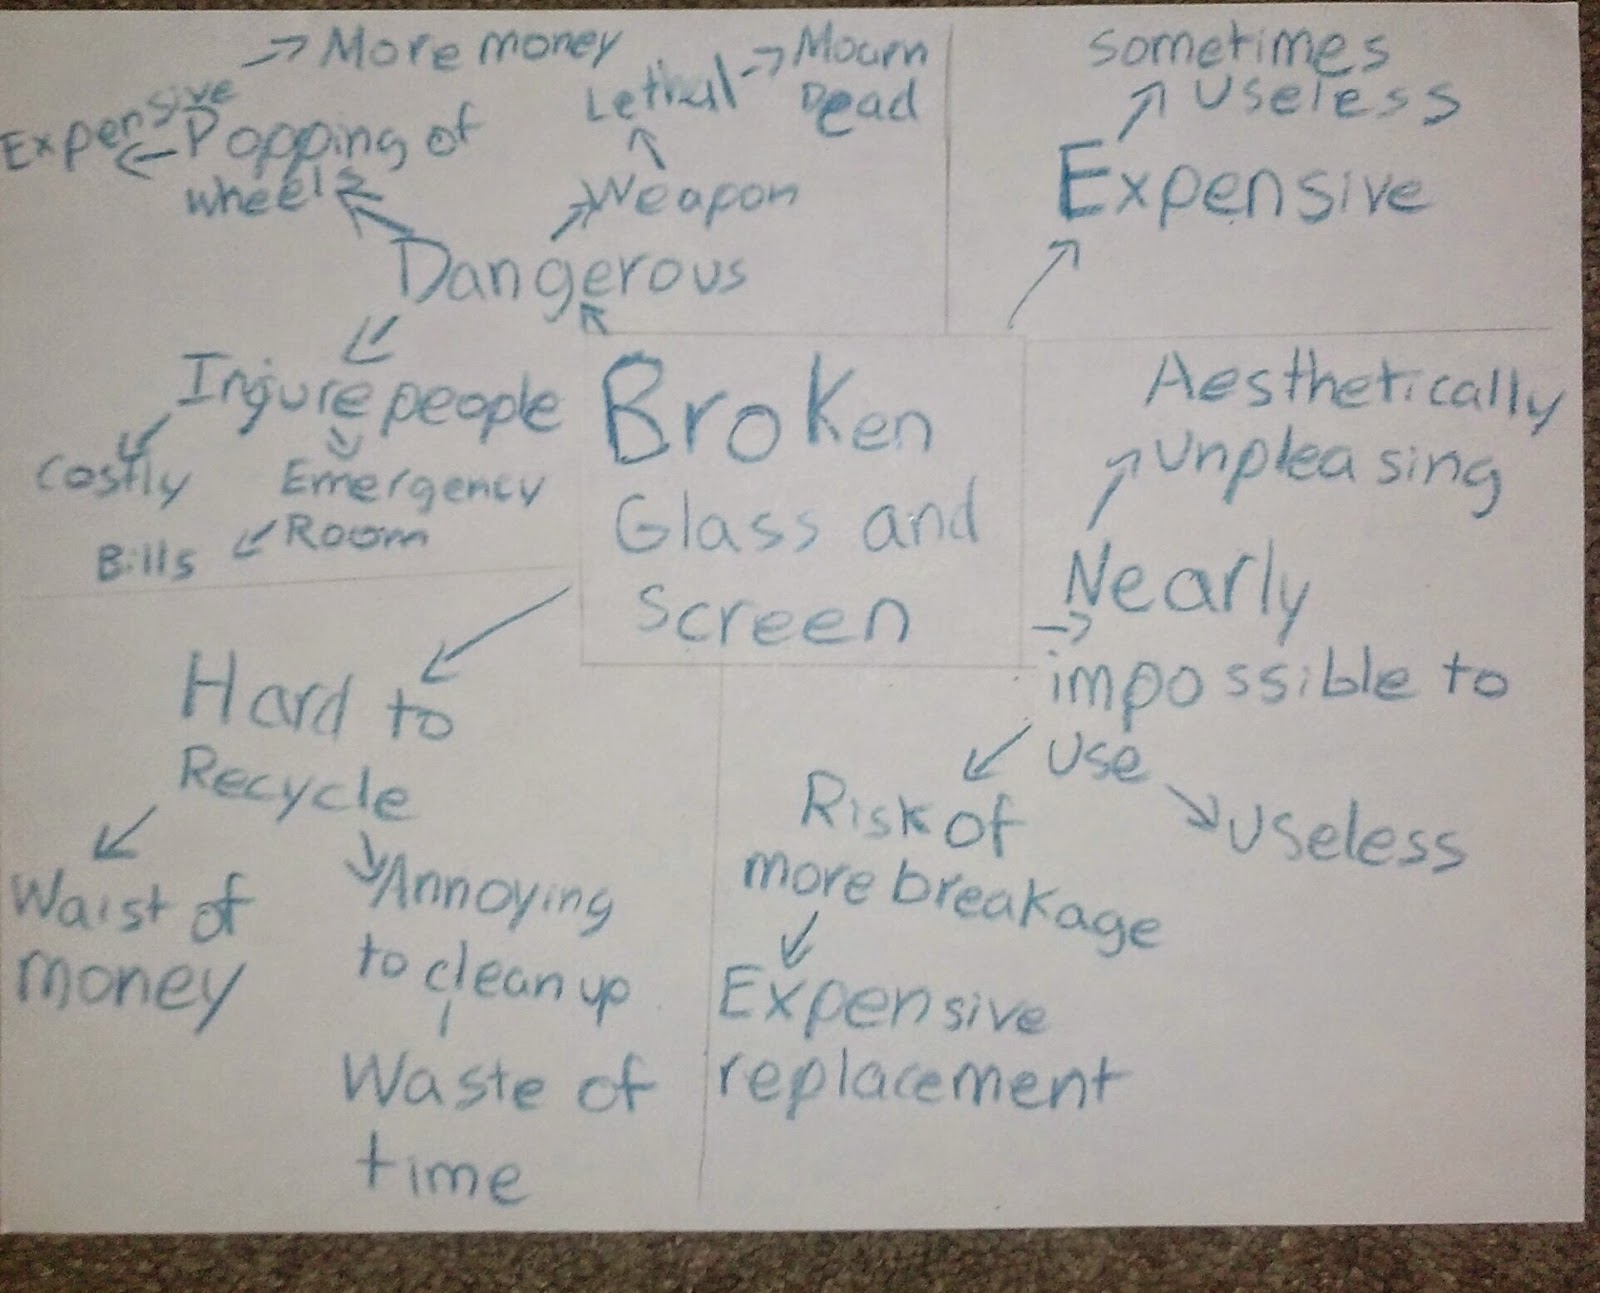 More money
Expensive
Popping of
wheels
Lethal
Mourn
Dead
Weapon
Dangerous
Injure people
Costly
Emergency
Room
Bills
sometimes
useless
Expensive
Broken
Glass and
Screen
Aesthetically
unpleasing
Nearly
impossible to
use
Useless
Risk of
more breakage
Expensive
replacement
Hard to
Recycle
Waist of
money
Annoying
to clean up
Waste of
time